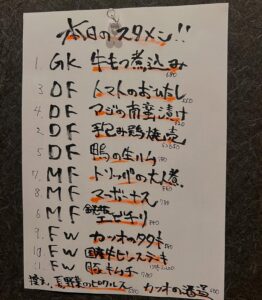 本日のスタメン!!
1. GK 牛もつ煮込み
3. DF トマトのおひたし
4. DF アジの南蛮漬け
2. DF 手包み鶏焼売
5. DF 鴨の生ハム
7. MF トリッパの大人煮
8. MF マーボーナス
6. MF 鉄板エビチリ
9. FW カツオのタタキ
10. FW 国産牛ヒレステーキ
11. FW 豚キムチ
控え、夏野菜のピクルス カツオの酒盗